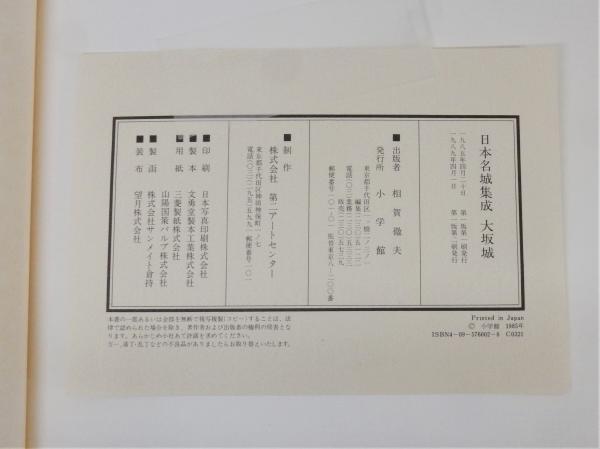 日本名城集成 大坂城
一九八五年四月二十日 第一版第一刷発行
一九八九年四月一日 第一版第二刷発行
■出版者 相賀徹夫
発行所 小学館
東京都千代田区一ツ橋二ノ三ノ一
郵便番号一〇一-〇一 振替東京八-二〇〇番
■制作
株式会社 第二アートセンター
東京都千代田区神田神保町一ノ七
■印刷 日本写真印刷株式会社
■製本 文勇堂製本工業株式会社
■用紙 三菱製紙株式会社
山陽国策パルプ株式会社
■製函 株式会社サンメイト倉持
■装布 望月株式会社
本書の一部あるいは全部を無断で複写複製(コピー)することは、法
律で認められた場合を除き、著作者および出版者の権利の侵害とな
ります。あらかじめ小社あて許諾を求めてください。
万一、落丁・乱丁などの不良品がありましたらお取り替えいたします。
Printed in Japan
© 小学館 1985年
ISBN4-09-576002-8 C0321